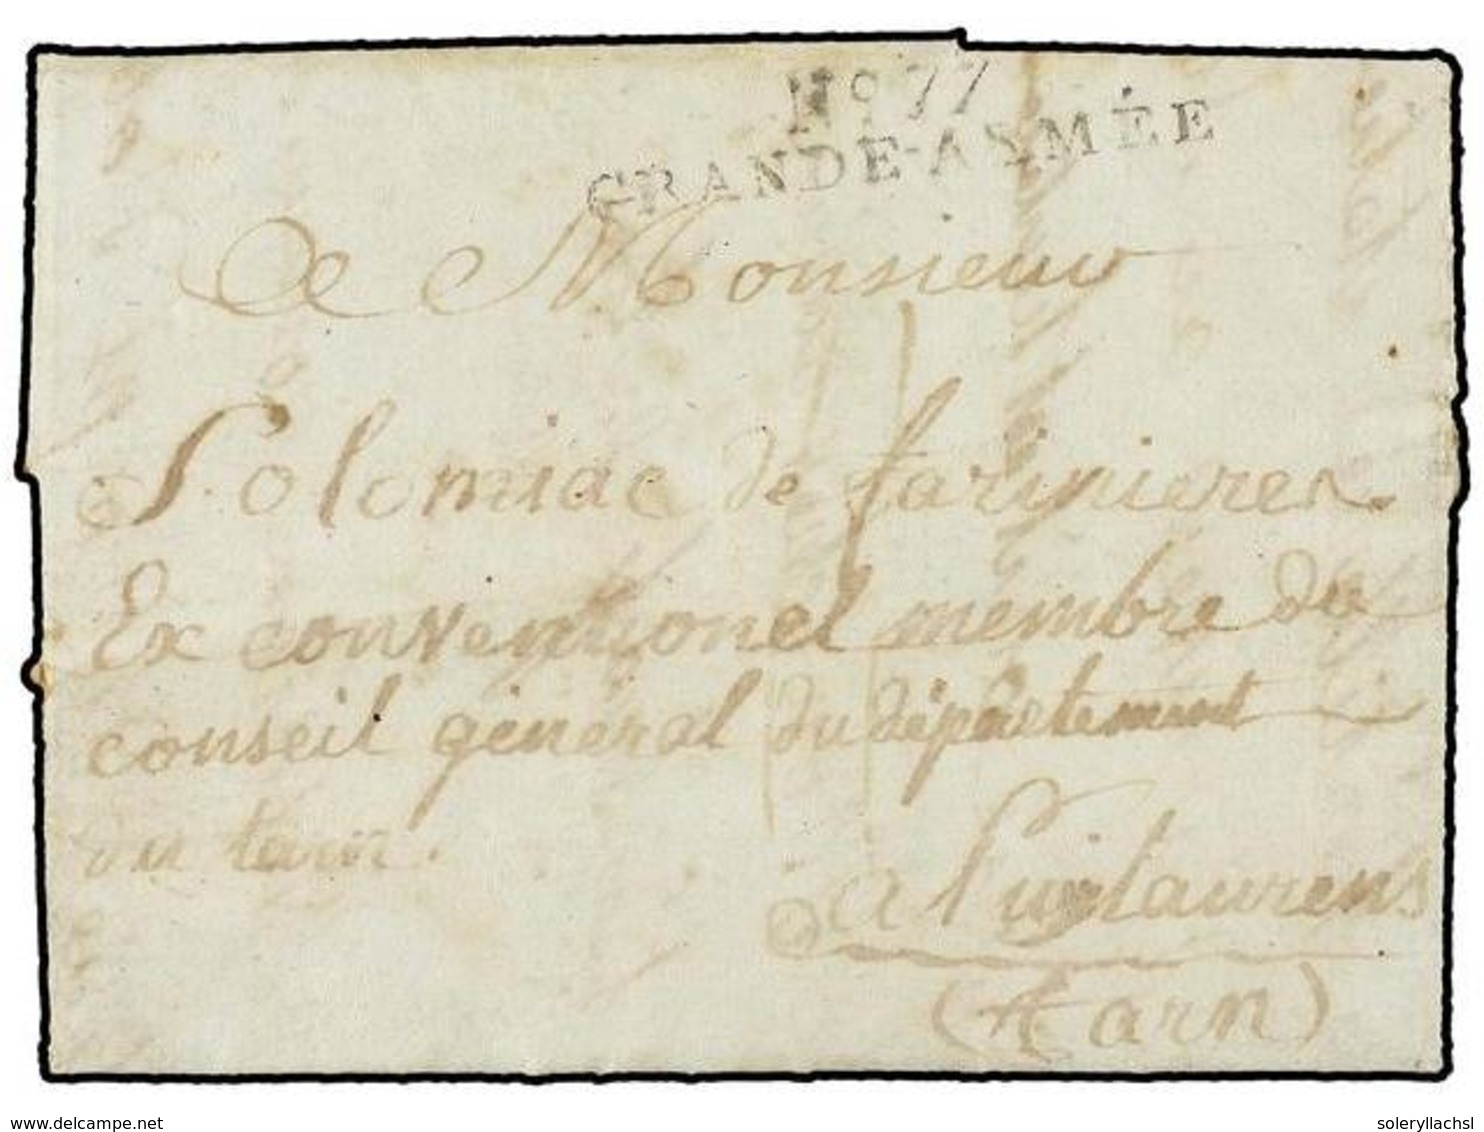 No 77
GRANDE-ARMÉE
A Monsieur
Solomiac de farinieres
Ex conventionel membre du
conseil général du département
du tarn.
a Puilaurens
(tarn)
delcampe.net
soleryllachsl